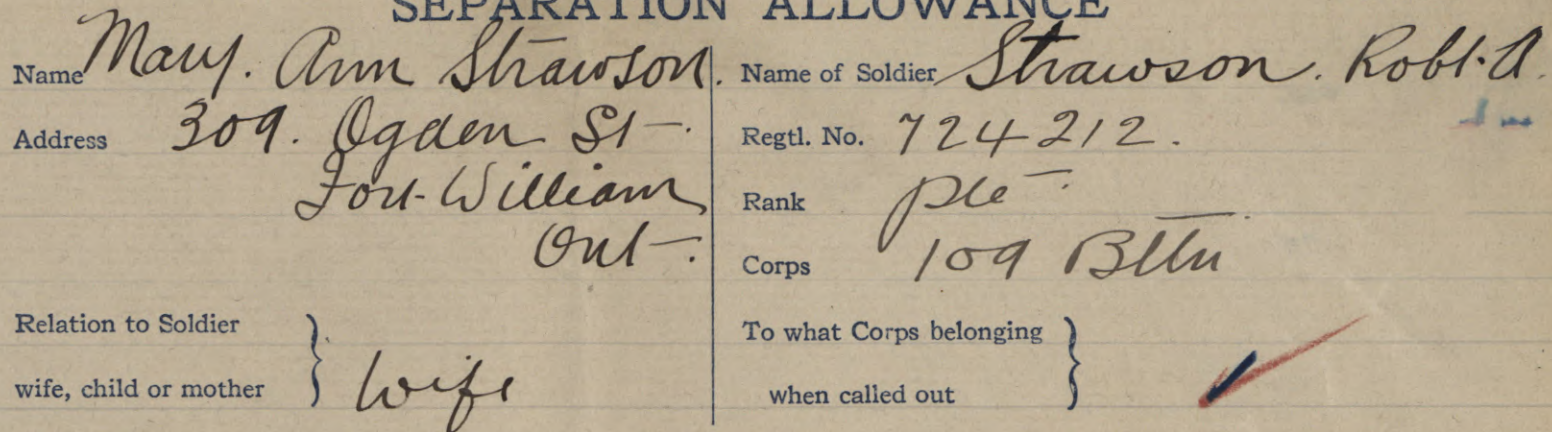 SEPARATION ALLOWANCE
Name Mary. Ann Strawson.
Address 309. Ogden St.
Fort William
Ont.
Relation to Soldier
wife, child or mother } Wife
Name of Soldier Strawson. Robt. A.
Regtl. No. 724212.
Rank Pte
Corps 109 Bttn
To what Corps belonging
when called out }